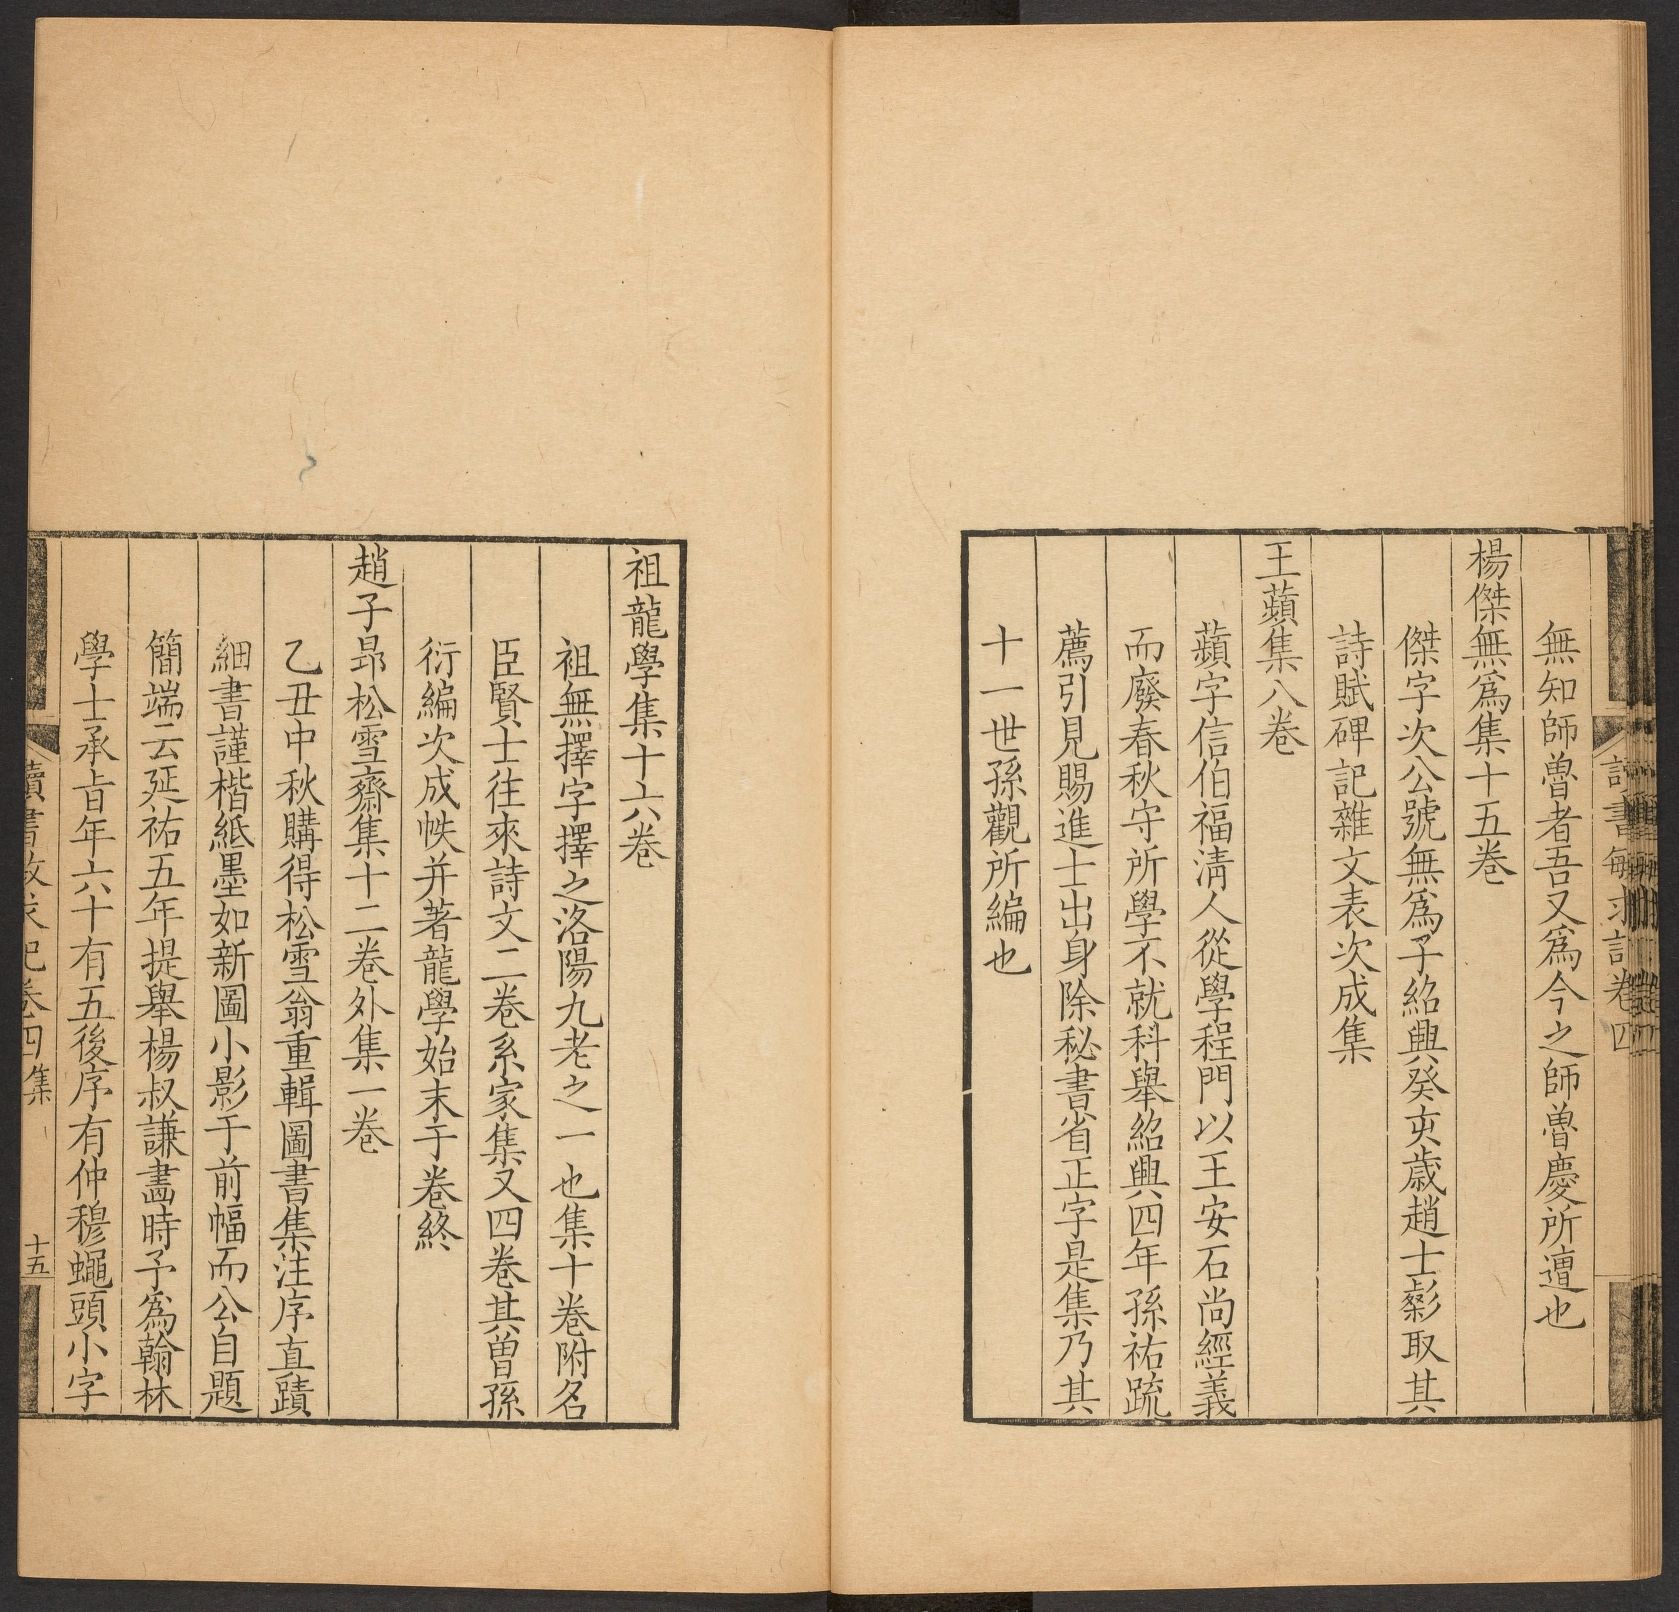 無知師曾者吾又爲今之師曾慶所遭也
楊傑無爲集十五卷
傑字次公號無爲子紹興癸亥歲趙士㣉取其
詩賦碑記雜文表次成集
王蘋集八卷
蘋字信伯福清人從學程門以王安石尚經義
而廢春秋守所學不就科舉紹興四年孫祐疏
薦引見賜進士出身除秘書省正字是集乃其
十一世孫觀所編也
讀書敏求記卷四
祖龍學集十六卷
祖無擇字擇之洛陽九老之一也集十卷附名
臣賢士往來詩文二卷系家集又四卷其曾孫
衍編次成帙并著龍學始末于卷終
趙子昂松雪齋集十二卷外集一卷
乙丑中秋購得松雪翁重輯圖書集注序直蹟
細書謹楷紙墨如新圖小影于前幅而公自題
簡端云延祐五年提舉楊叔謙畫時予爲翰林
學士承旨年六十有五後序有仲穆蠅頭小字
讀書敏求記卷四集 十五